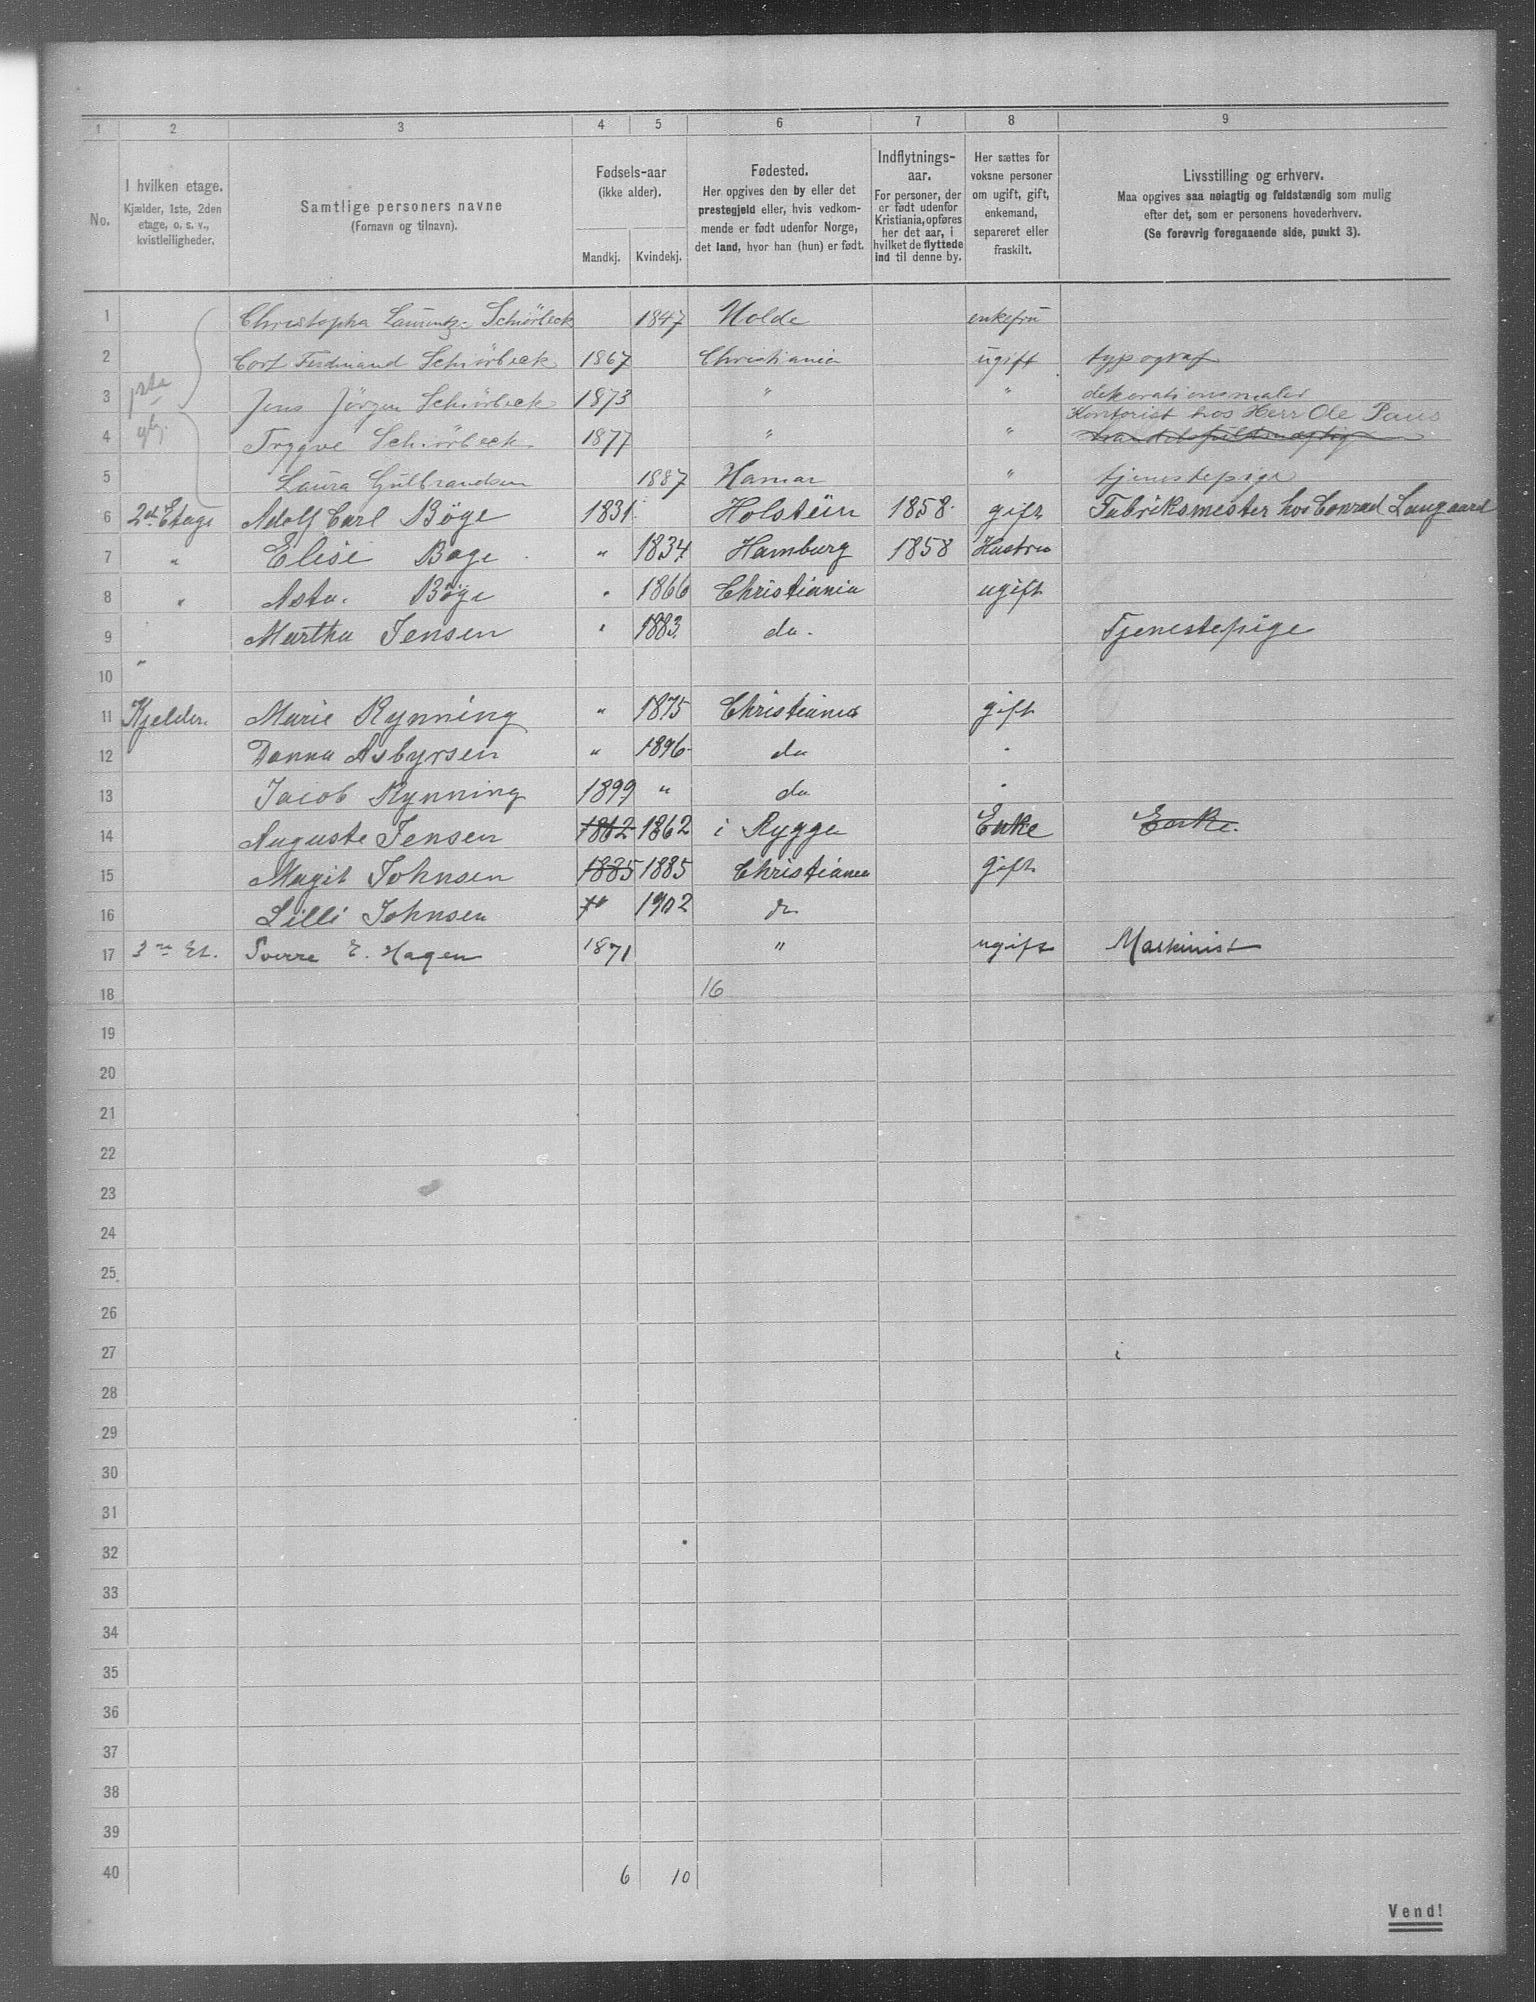 1 2 3 4 5 6 7 8 9
No.
I hvilken etage.
Kjælder, 1ste, 2den
etage, o. s. v.,
kvistleiligheder.
Samtlige personers navne
(Fornavn og tilnavn).
Fødsels-aar
(ikke alder).
Mandkj. Kvindekj.
Fødested.
Her opgives den by eller det
prestegjeld eller, hvis vedkom-
mende er født udenfor Norge,
det land, hvor han (hun) er født.
Indflytnings-
aar.
For personer, der
er født udenfor
Kristiania, opføres
her det aar, i
hvilket de flyttede
ind til denne by.
Her sættes for
voksne personer
om ugift, gift,
enkemand,
separeret eller
fraskilt.
Livsstilling og erhverv.
Maa opgives saa nøiagtig og fuldstændig som mulig
efter det, som er personens hovederhverv.
(Se forøvrig foregaaende side, punkt 3).
1ste
1 Christopha Schiörbeck 1847 Molde enkefru
2 Cort Ferdinand Schiörbeck 1867 Christiania ugift typograf
3 Jens Jörgen Schiörbeck 1873 " " dekorationsmaler
Kontorist hos Herr Ole Paus
4 Trygve Schiörbeck 1877 " "
5 Laura Gulbrandsen 1887 Hamar " tjenestepige
6 2d Etage Adolf Carl Böge 1831 Holstein 1858 gift Fabriksmester hos Conrad Langaard
7 " Elise Böge " 1834 Hamburg 1858 Hustru
8 " Asta Böge " 1866 Christiania ugift
9 " Martha Jensen " 1883 do. Tjenestepige
10
11 Kjelder Marie Rynning " 1875 Christiania gift
12 Danna Asbyrsen " 1896 do "
13 Jacob Rynning 1899 " do "
14 Auguste Jensen 1862 1862 i Rygge Enke Enke.
15 Magit Johnsen 1885 1885 Christiania Gift
16 Lilli Johnsen " 1902 do
17 3die Et. Sverre E. Hagen 1871 " ugift Maskinist
18 16
19
20
21
22
23
24
25
26
27
28
29
30
31
32
33
34
35
36
37
38
39
40 6 10
Vend!